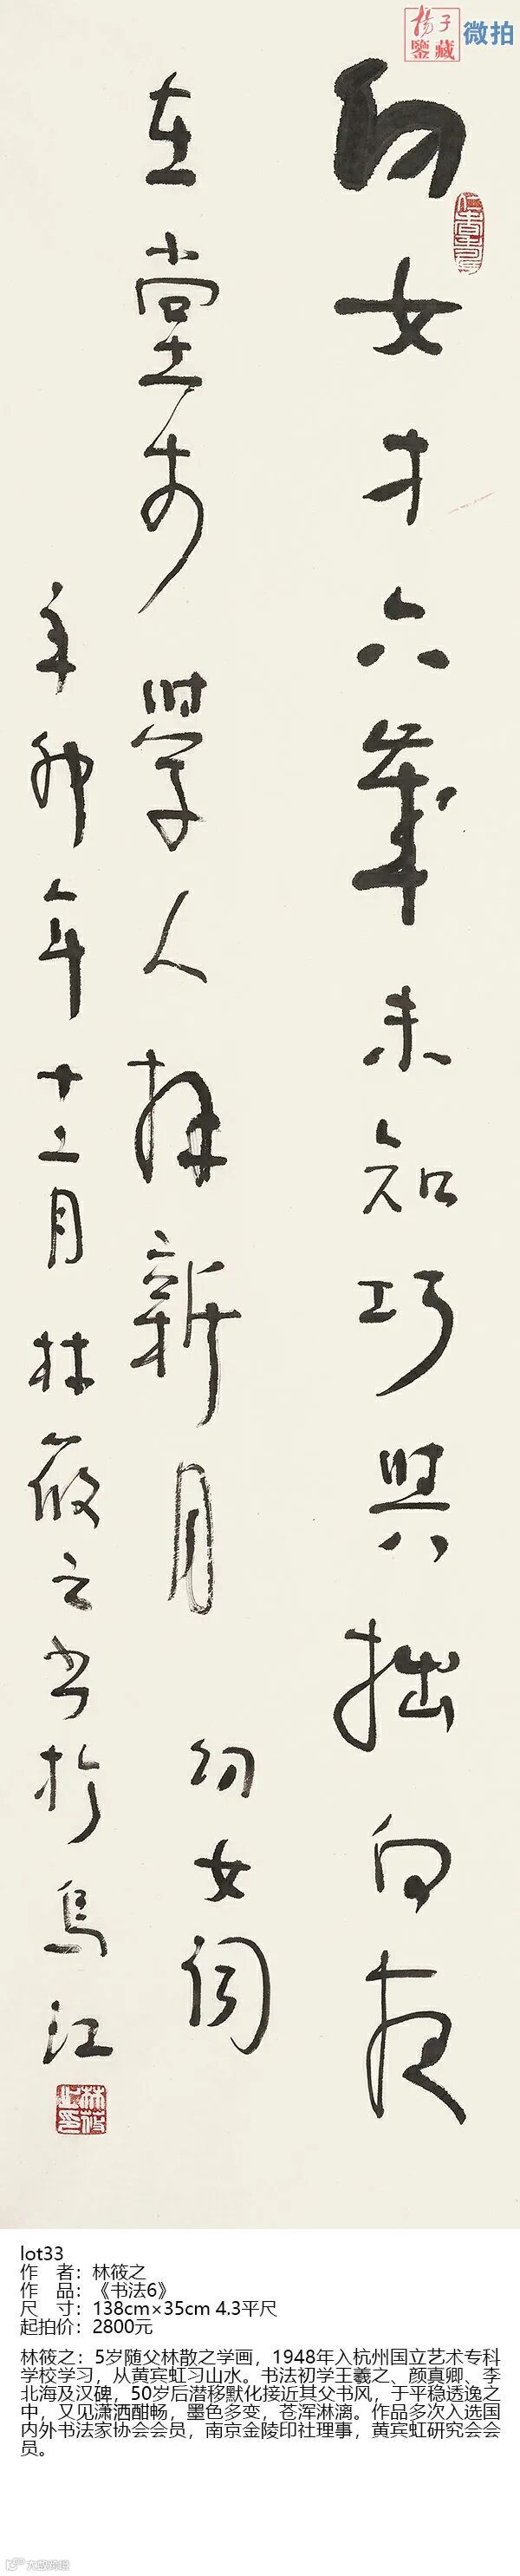 揚子
鑒藏
微拍
幼女才六歲未知巧與拙向夜
在堂前學人拜新月 幼女詞
辛卯年十二月林筱之書於烏江
林筱之印
lot33
作 者：林筱之
作 品：《书法6》
尺 寸：138cm×35cm 4.3平尺
起拍价：2800元
林筱之：5岁随父林散之学画，1948年入杭州国立艺术专科
学校学习，从黄宾虹习山水。书法初学王羲之、颜真卿、李
北海及汉碑，50岁后潜移默化接近其父书风，于平稳透逸之
中，又见潇洒酣畅，墨色多变，苍浑淋漓。作品多次入选国
内外书法家协会会员，南京金陵印社理事，黄宾虹研究会会
员。
大数跨境